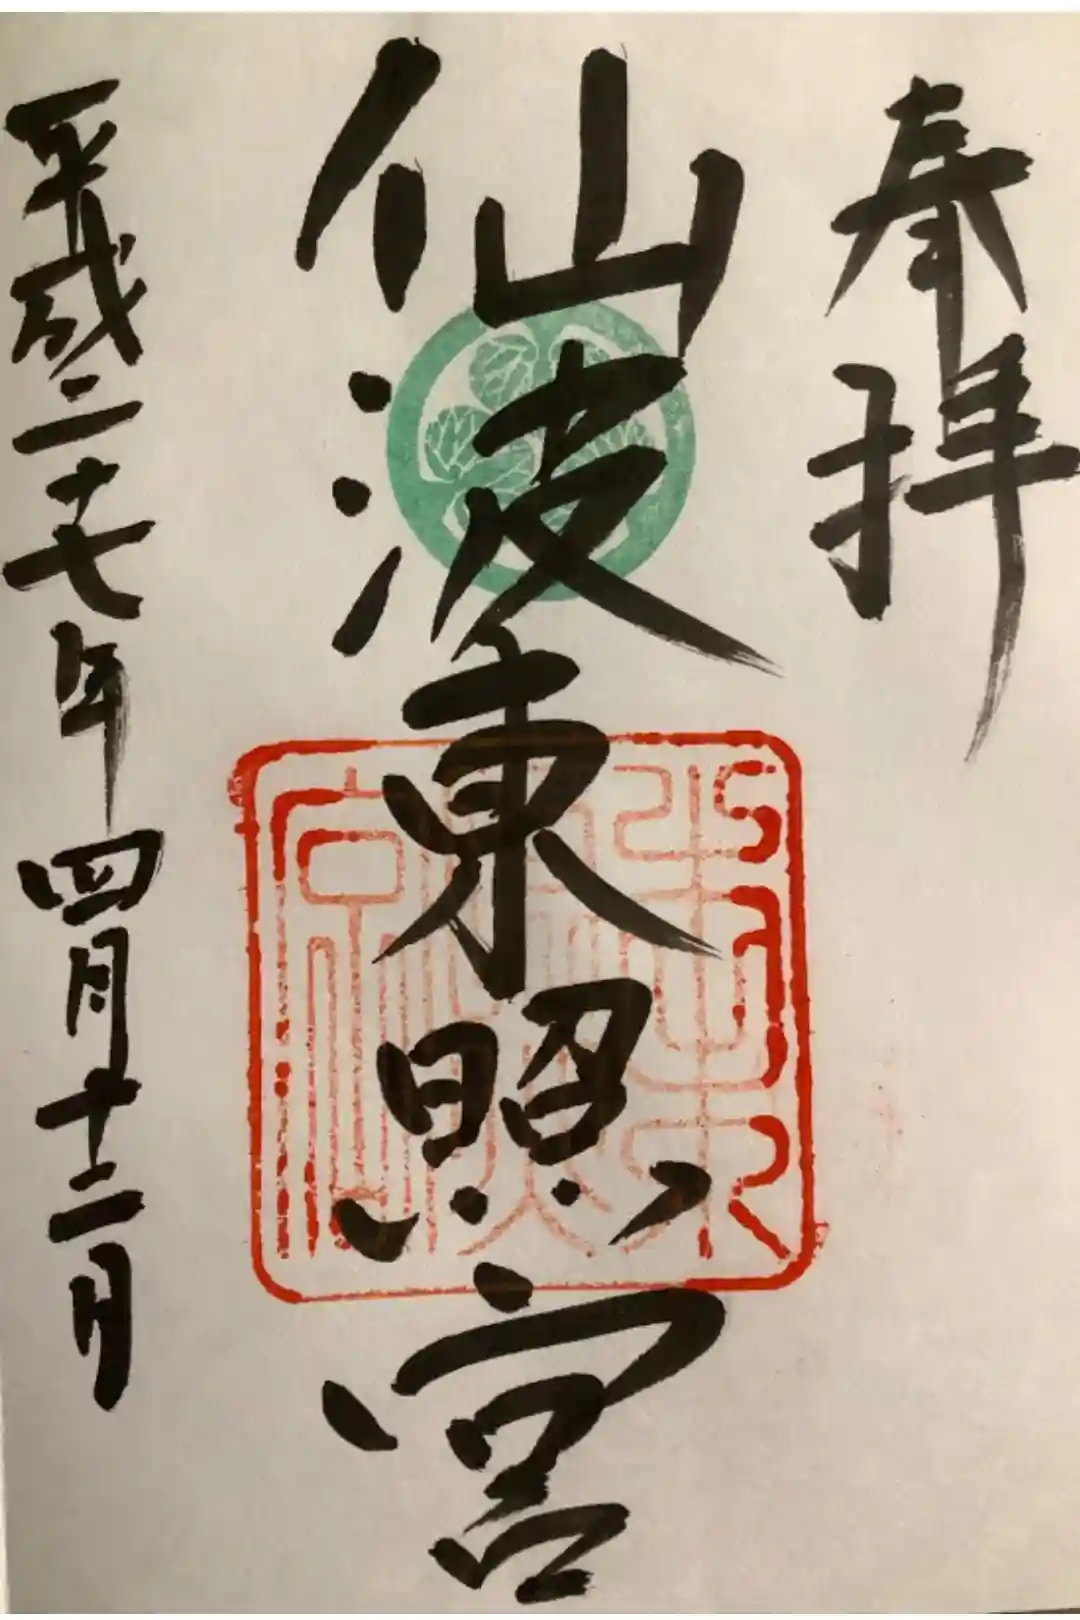 奉拝
仙波東照宮
平成二十七年四月十二月